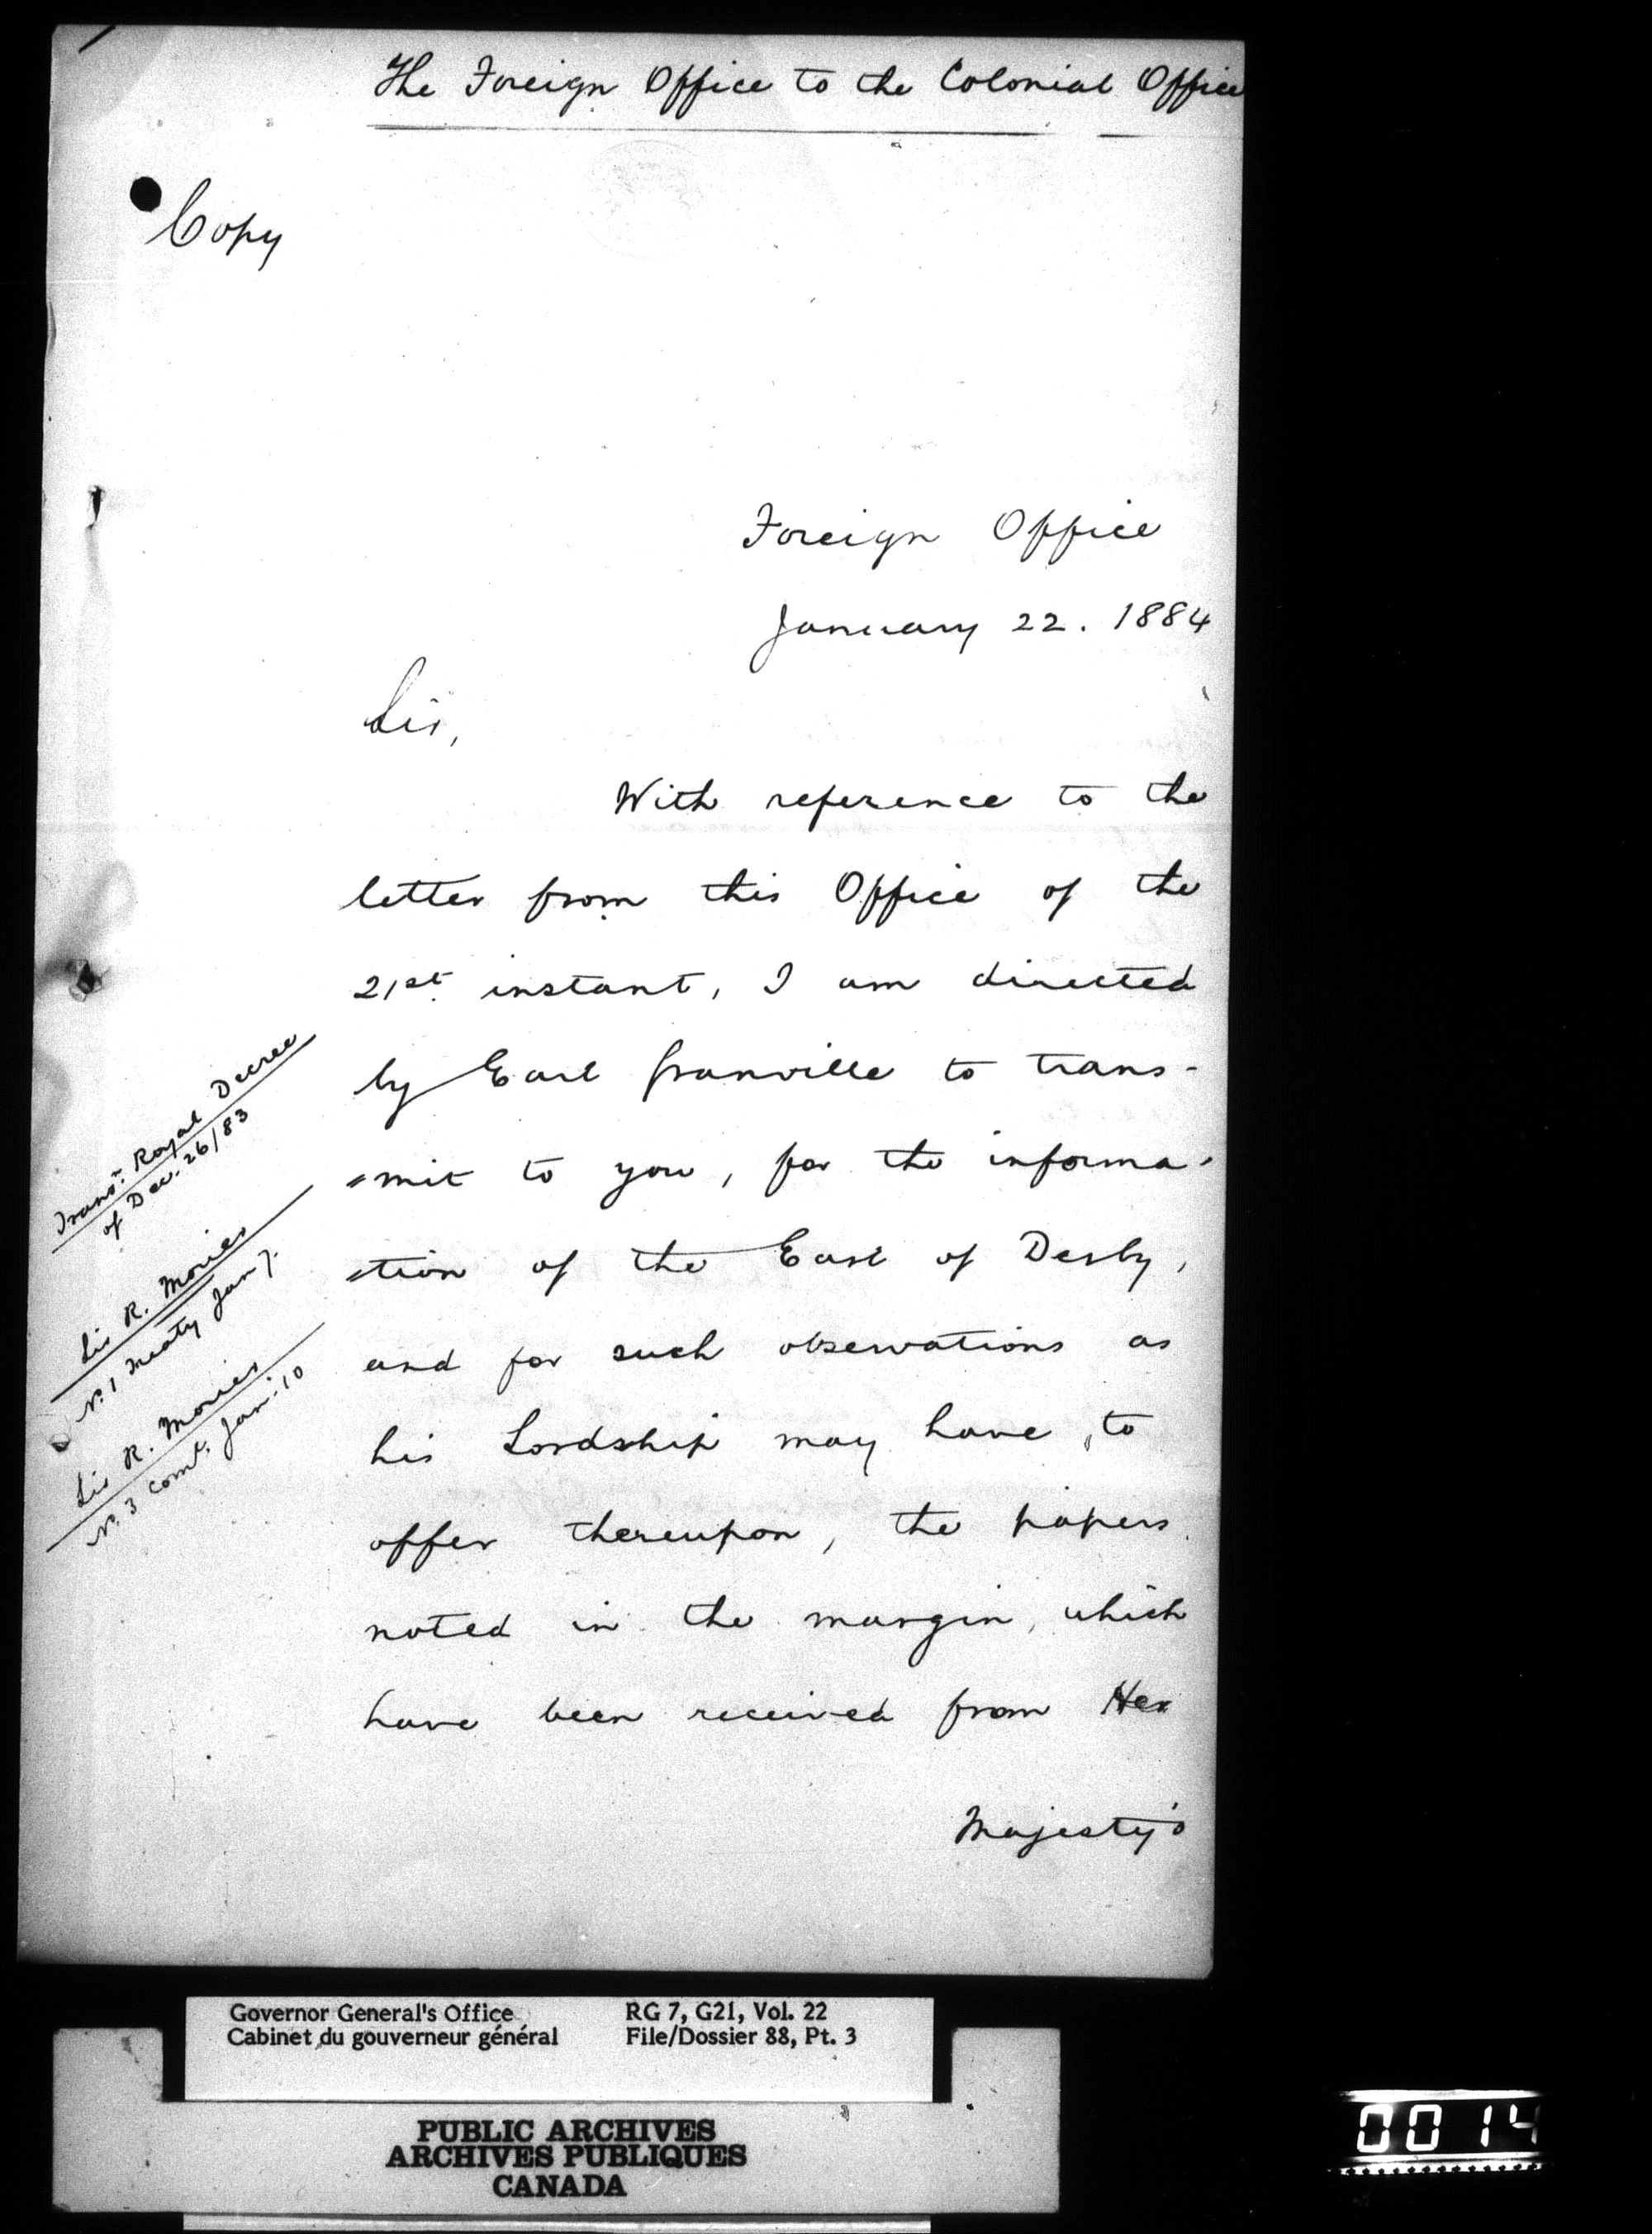 The Foreign Office to the Colonial Office
Copy
Foreign Office
January 22. 1884
Sir,
With reference to the
letter from this Office of the
21st instant, I am directed
by Earl Granville to trans-
=mit to you, for the informa-
=tion of the Earl of Derby,
and for such observations as
his Lordship may have to
offer thereupon, the papers
noted in the margin, which
have been received from Her
Majesty's
Transn. Royal Decree
of Dec. 26/83
Sir R. Morier
No. 1 Treaty Jan 7.
Sir R. Morier
No. 3 Coml. Jan. 10
Governor General's Office
Cabinet du gouverneur général
RG 7, G21, Vol. 22
File/Dossier 88, Pt. 3
PUBLIC ARCHIVES
ARCHIVES PUBLIQUES
CANADA
0014